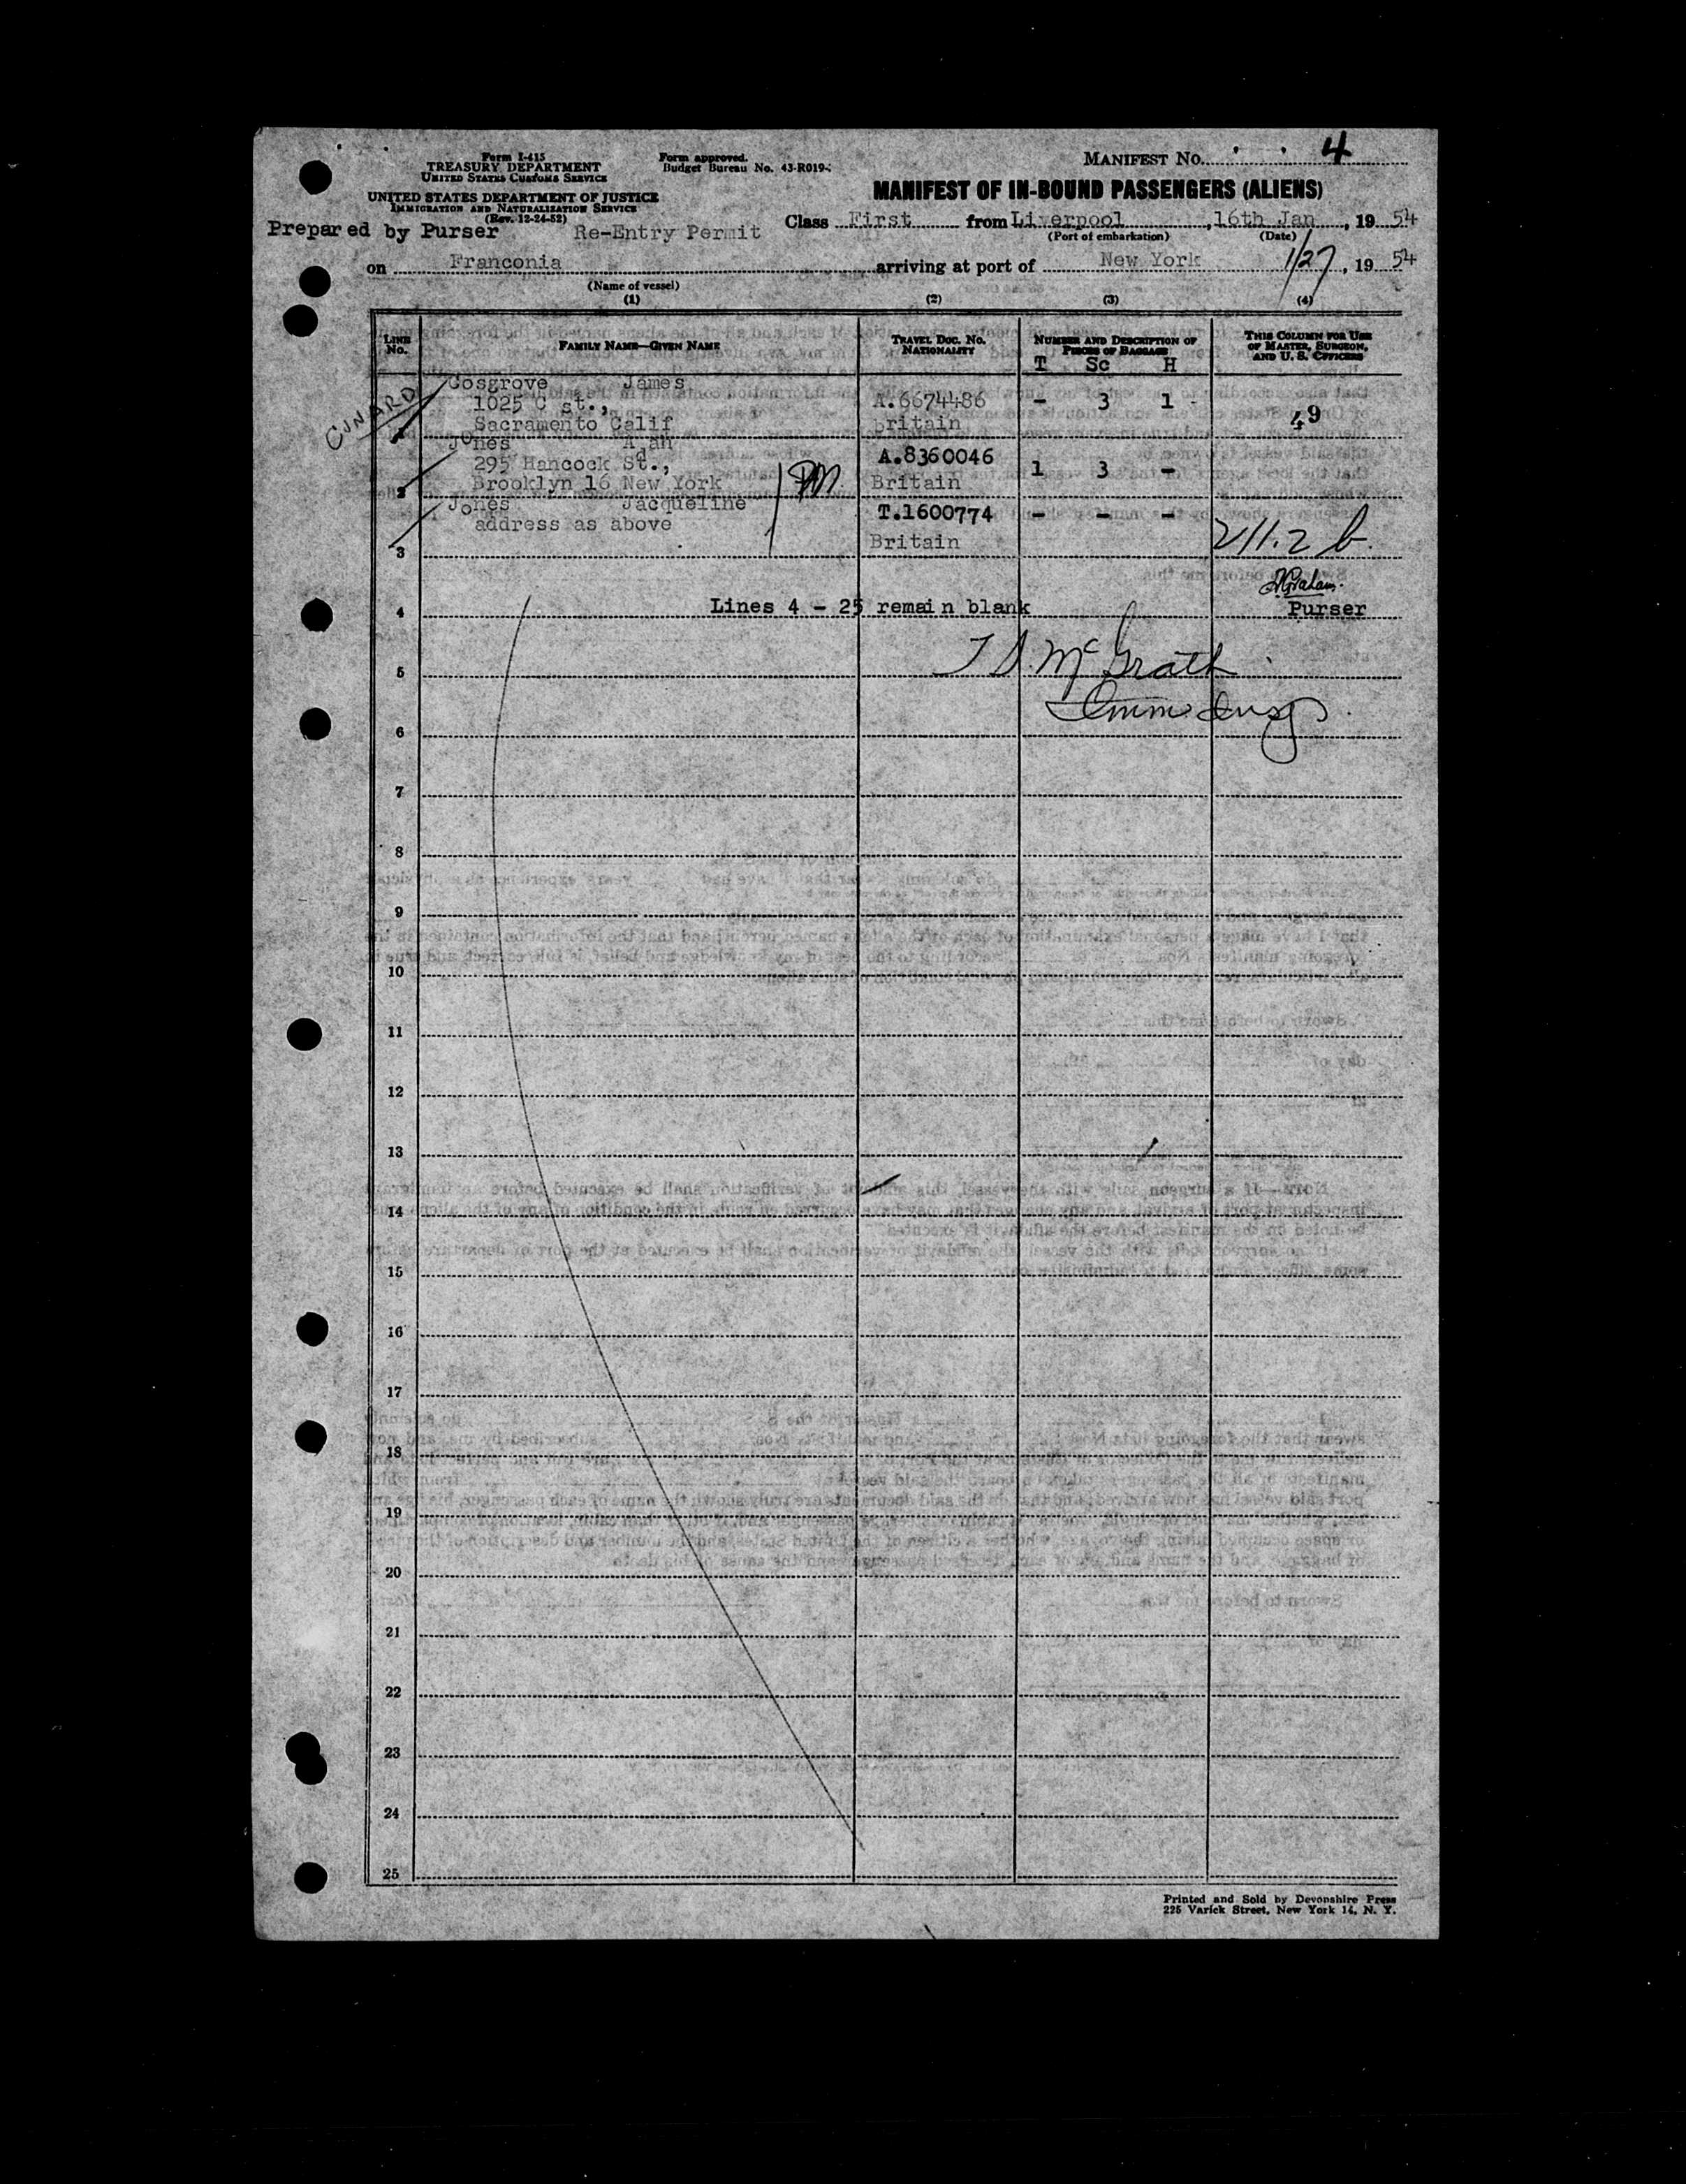 Form I-415
TREASURY DEPARTMENT
UNITED STATES CUSTOMS SERVICE
UNITED STATES DEPARTMENT OF JUSTICE
IMMIGRATION AND NATURALIZATION SERVICE
(Rev. 12-24-52)
Form approved.
Budget Bureau No. 43-R019-
MANIFEST No. 4
MANIFEST OF IN-BOUND PASSENGERS (ALIENS)
Prepared by Purser Re-Entry Permit
Class First from Liverpool, 16th Jan, 1954
(Port of embarkation) (Date)
on Franconia arriving at port of New York 1/27, 1954
(Name of vessel)
(1) (2) (3) (4)
LINE No. FAMILY NAME—GIVEN NAME TRAVEL DOC. NO. NATIONALITY NUMBER AND DESCRIPTION OF PIECES OF BAGGAGE THIS COLUMN FOR USE OF MASTER, SURGEON, AND U. S. OFFICERS
T Sc H
CUNARD
Cosgrove James
1025 C st., A.6674486 - 3 1 - 49
Sacramento Calif britain
Jones
295 Hancock St., A.8360046 1 3 -
2 Brooklyn 16 New York Britain
Jones Jacqueline T.1600774 - - -
address as above
3 Britain 211.2 b.
Graham.
4 Lines 4 - 25 remain blank Purser
5 McGrath
Imm. Insp.
6
7
8
9
10
11
12
13
14
15
16
17
18
19
20
21
22
23
24
25
Printed and Sold by Devonshire Press
225 Varick Street, New York 14, N. Y.